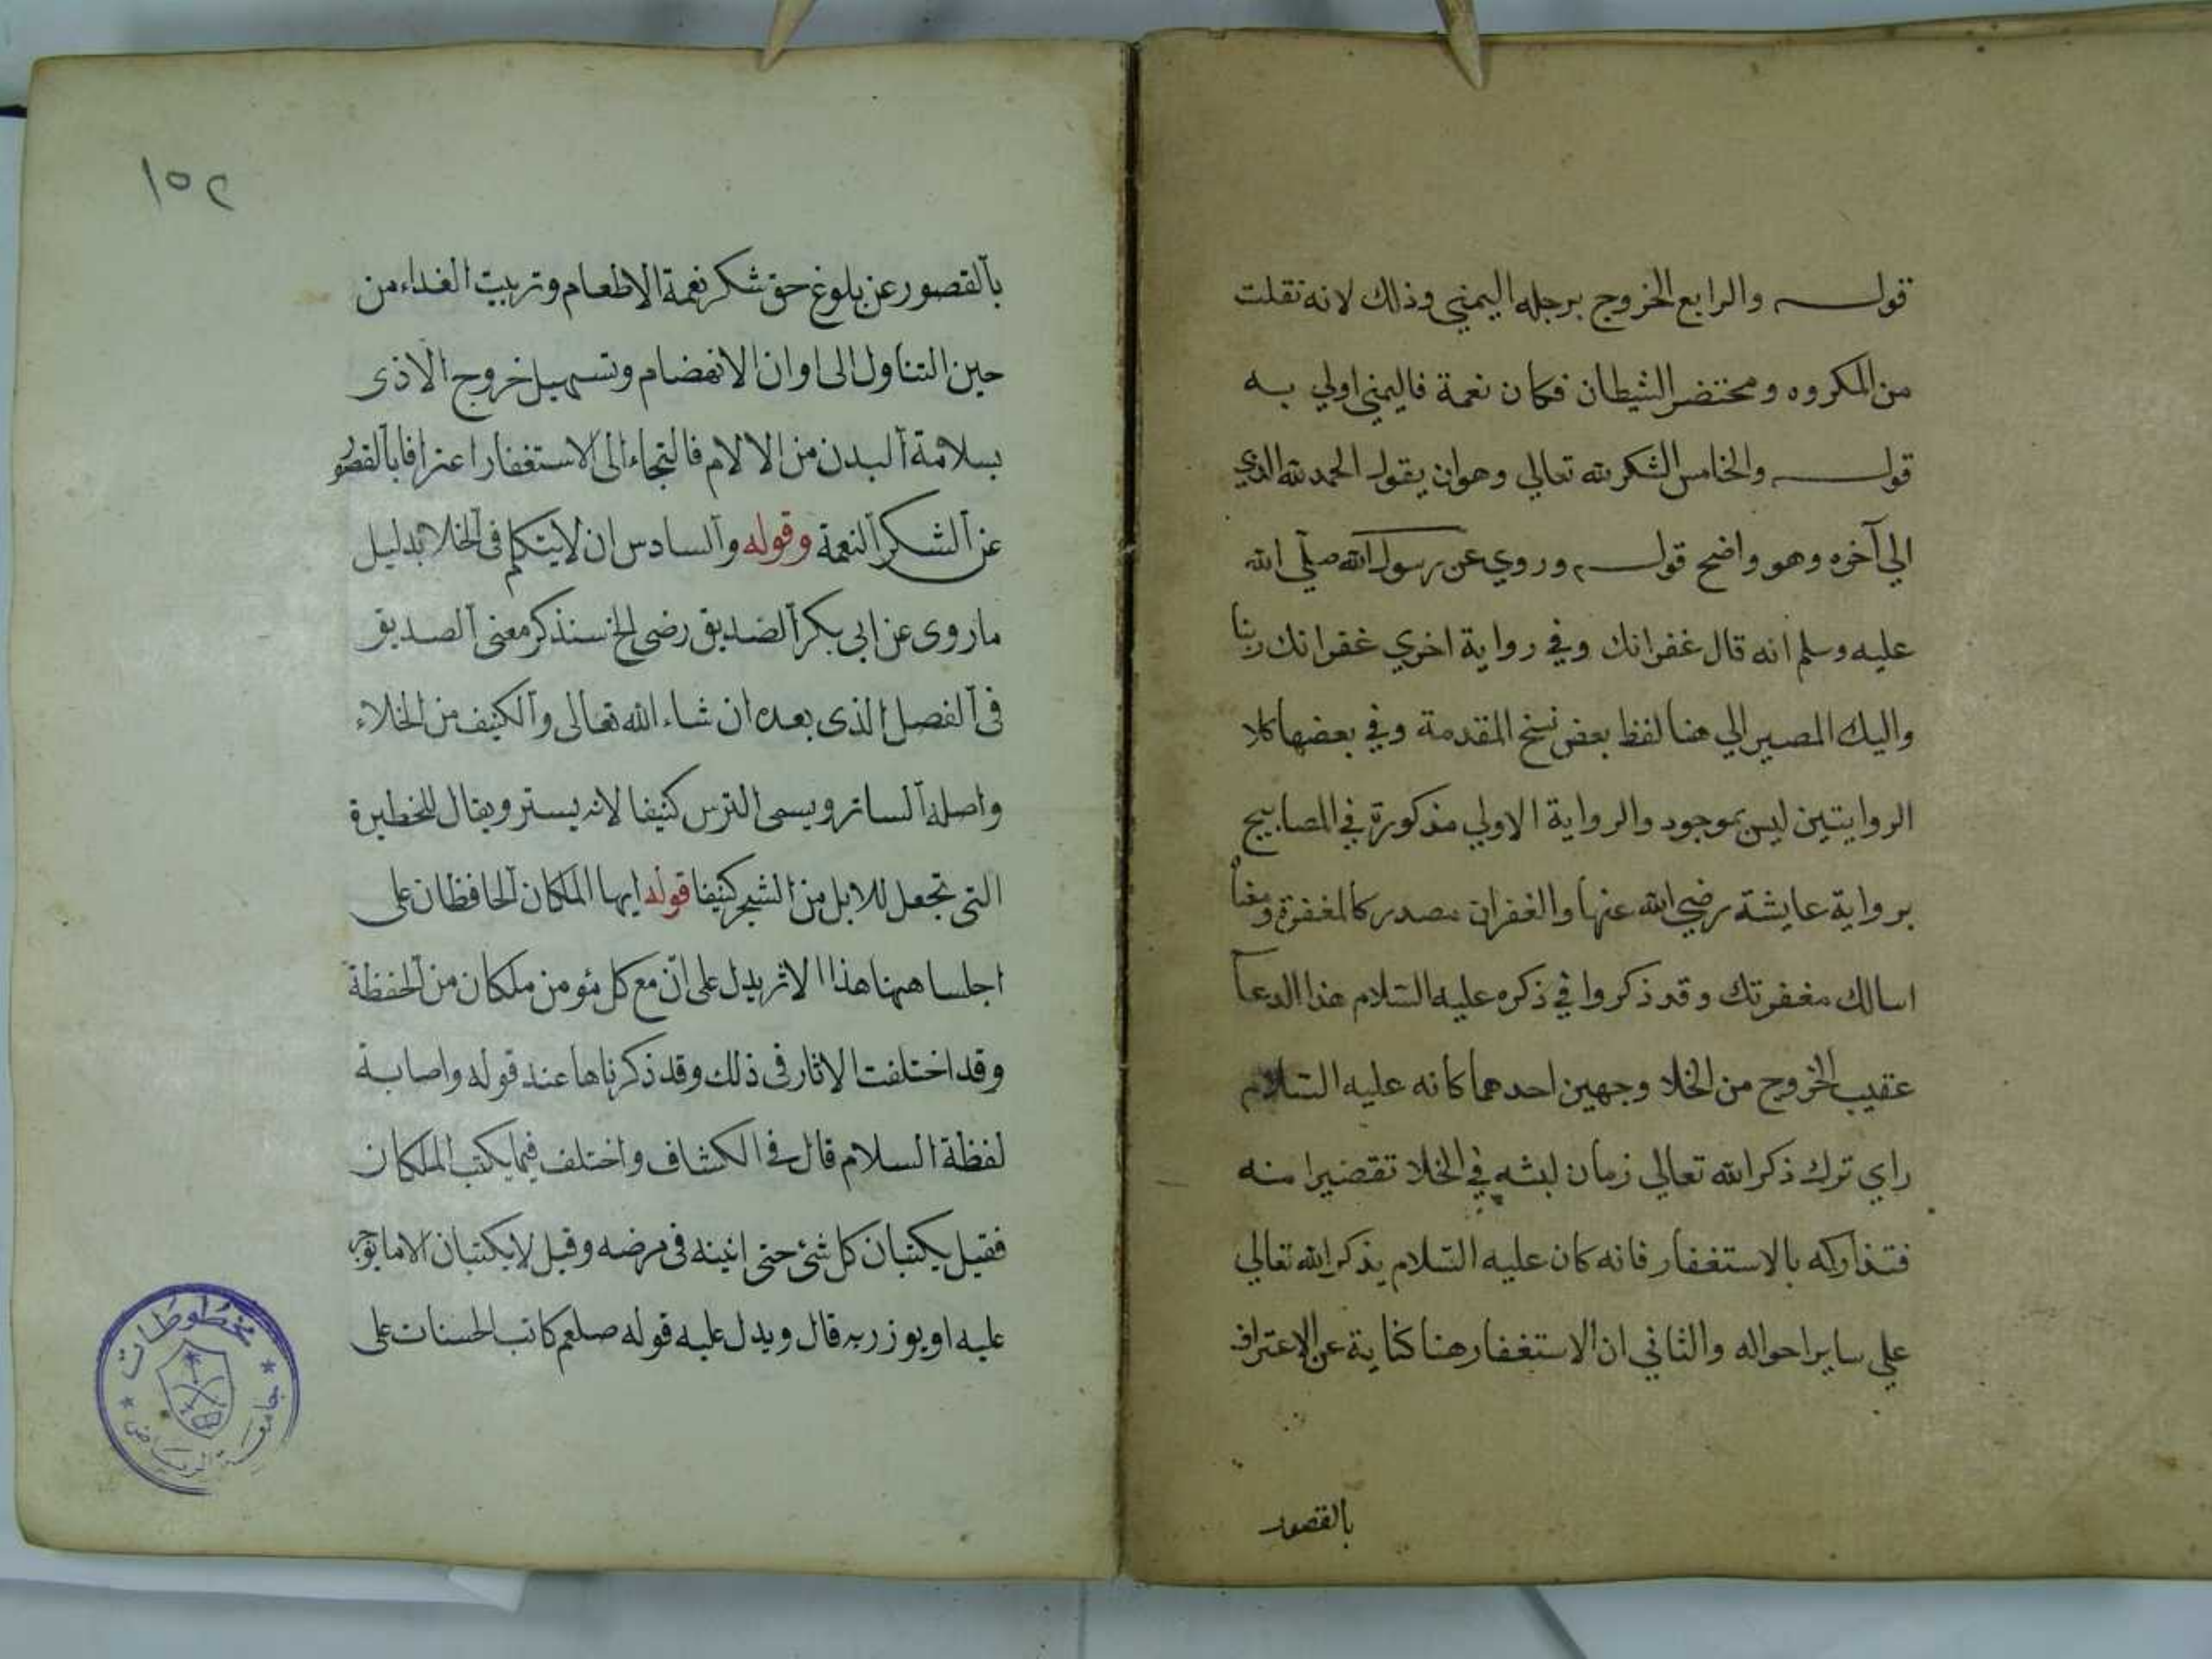 قولـــه والرابع الخروج برجله اليمني وذلك لانه نقلت
من المكروه ومحتضر الشيطان فكان نعمة فاليمني اولي به
قولـــه والخامس الشكر لله تعالي وهوان يقول الحمد لله الذي
الي آخره وهو واضح قولـــه وروي عن رسول الله صلي الله
عليه وسلم انه قال غفرانك وفي رواية اخري غفرانك ربنا
واليك المصير الي هنا لفظ بعض نسخ المقدمة وفي بعضها كلا
الروايتين ليس بموجود والرواية الاولي مذكورة في المصابيح
برواية عايشة رضي الله عنها والغفران مصدر كالمغفرة ومعنا
اسالك مغفرتك وقد ذكروا في ذكره عليه السلام هذا الدعا
عقيب الخروج من الخلا وجهين احدهما كانه عليه السلام
راي ترك ذكر الله تعالي زمان لبثه في الخلا تقضيرا منه
فتداركه بالاستغفار فانه كان عليه السلام يذكر الله تعالي
علي ساير احواله والثاني ان الاستغفار هنا كناية عن الاعتراف
بالقصور
١٥٢
بالقصور عن بلوغ حق شكر نعمة الاطعام وتربيت الغداء من
حين التناول الى اوان الانهضام وتسهيل خروج الاذى
بسلامة البدن من الالام فالتجاء الى الاستغفار اعترافا بالقصور
عن الشكر النعمة وقوله والسادس ان لايتكلم فى الخلا بدليل
ماروى عن ابى بكر الصديق رضى الخ سنذكر معنى الصديق
فى الفصل الذى بعده ان شاء الله تعالى والكنيف من الخلاء
واصله الساتر ويسمى الترس كنيفا لانه يستر ويقال للخطيرة
التى تجعل للابل من الشجر كنيفا قوله ايها الملكان الحافظان على
اجلسا ههنا هذا الاثر يدل على انّ مع كل مئومن ملكان من الحفظة
وقد اختلفت الاثار فى ذلك وقد ذكرناها عند قوله واصابة
لفظة السلام قال فى الكشاف واختلف فيما يكتب الملكان
فقيل يكتبان كل شئ حتى انينه فى مرضه وقيل لايكتبان الا مايوجر
عليه او يوزر به قال ويدل عليه قوله صلعم كاتب الحسنات على
مخطوطات
جامعة الرياض